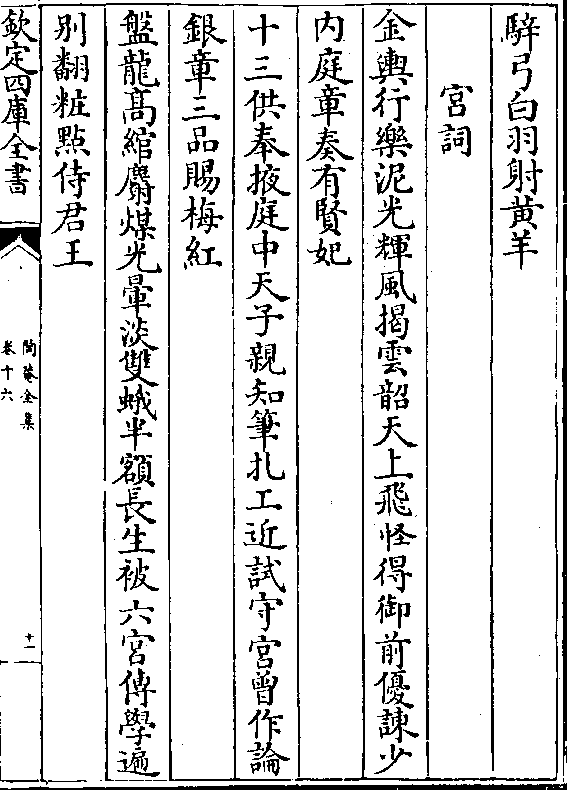 騂弓白羽射黄羊
宫詞
金輿行樂泥光輝風揭雲韶天上飛怪得御前優諫少
内庭章奏有賢妃
十三供奉掖庭中天子親知筆札工近試守宫曾作論
銀章三品賜梅紅
盤龍髙綰麝煤光暈淡雙蛾半額長生被六宫傳學遍
别翻粧點侍君王
欽定四庫全書
陶菴全集
卷十六
十一